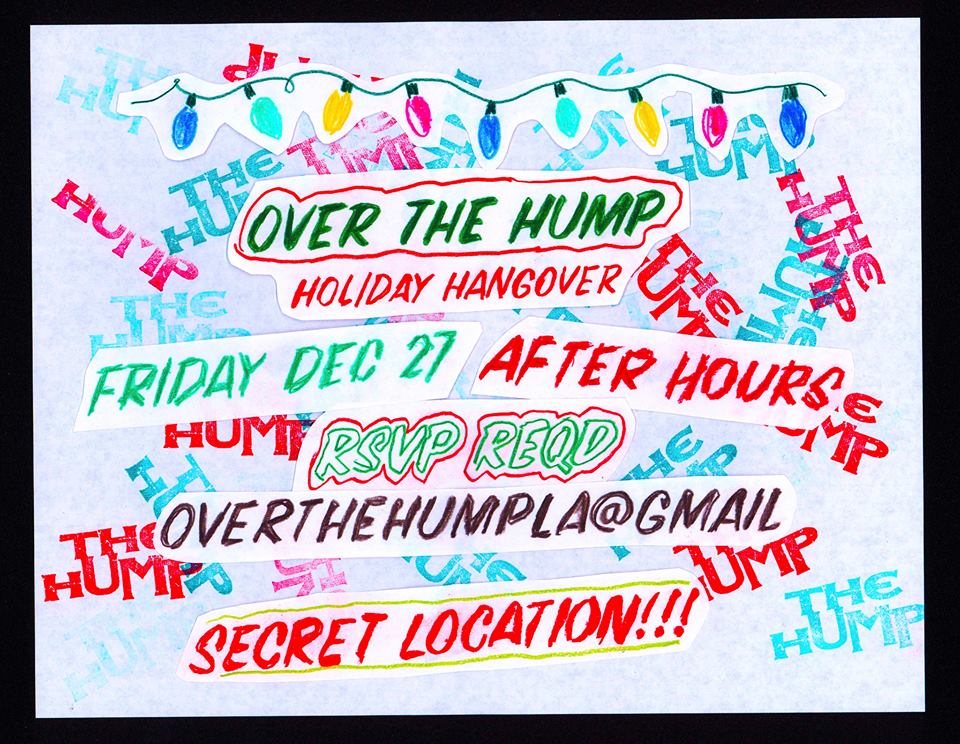 OVER THE HUMP
HOLIDAY HANGOVER
FRIDAY DEC 27 AFTER HOURS
RSVP REQD
OVERTHEHUMPLA@GMAIL
SECRET LOCATION!!!
THE HUMP
THE HUMP
HUMP
THE HUMP
THE HUMP
THE HUMP
THE HUMP
HUMP
THE HUMP
THE HUMP